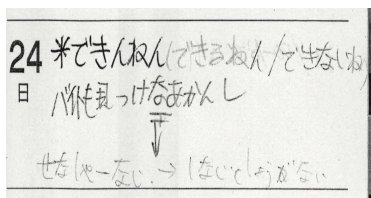 24 米できんねん(できるねん/できないね)
日 バイトも見つけなあかんし
↓
せなしゃーない → しないとしょうがない